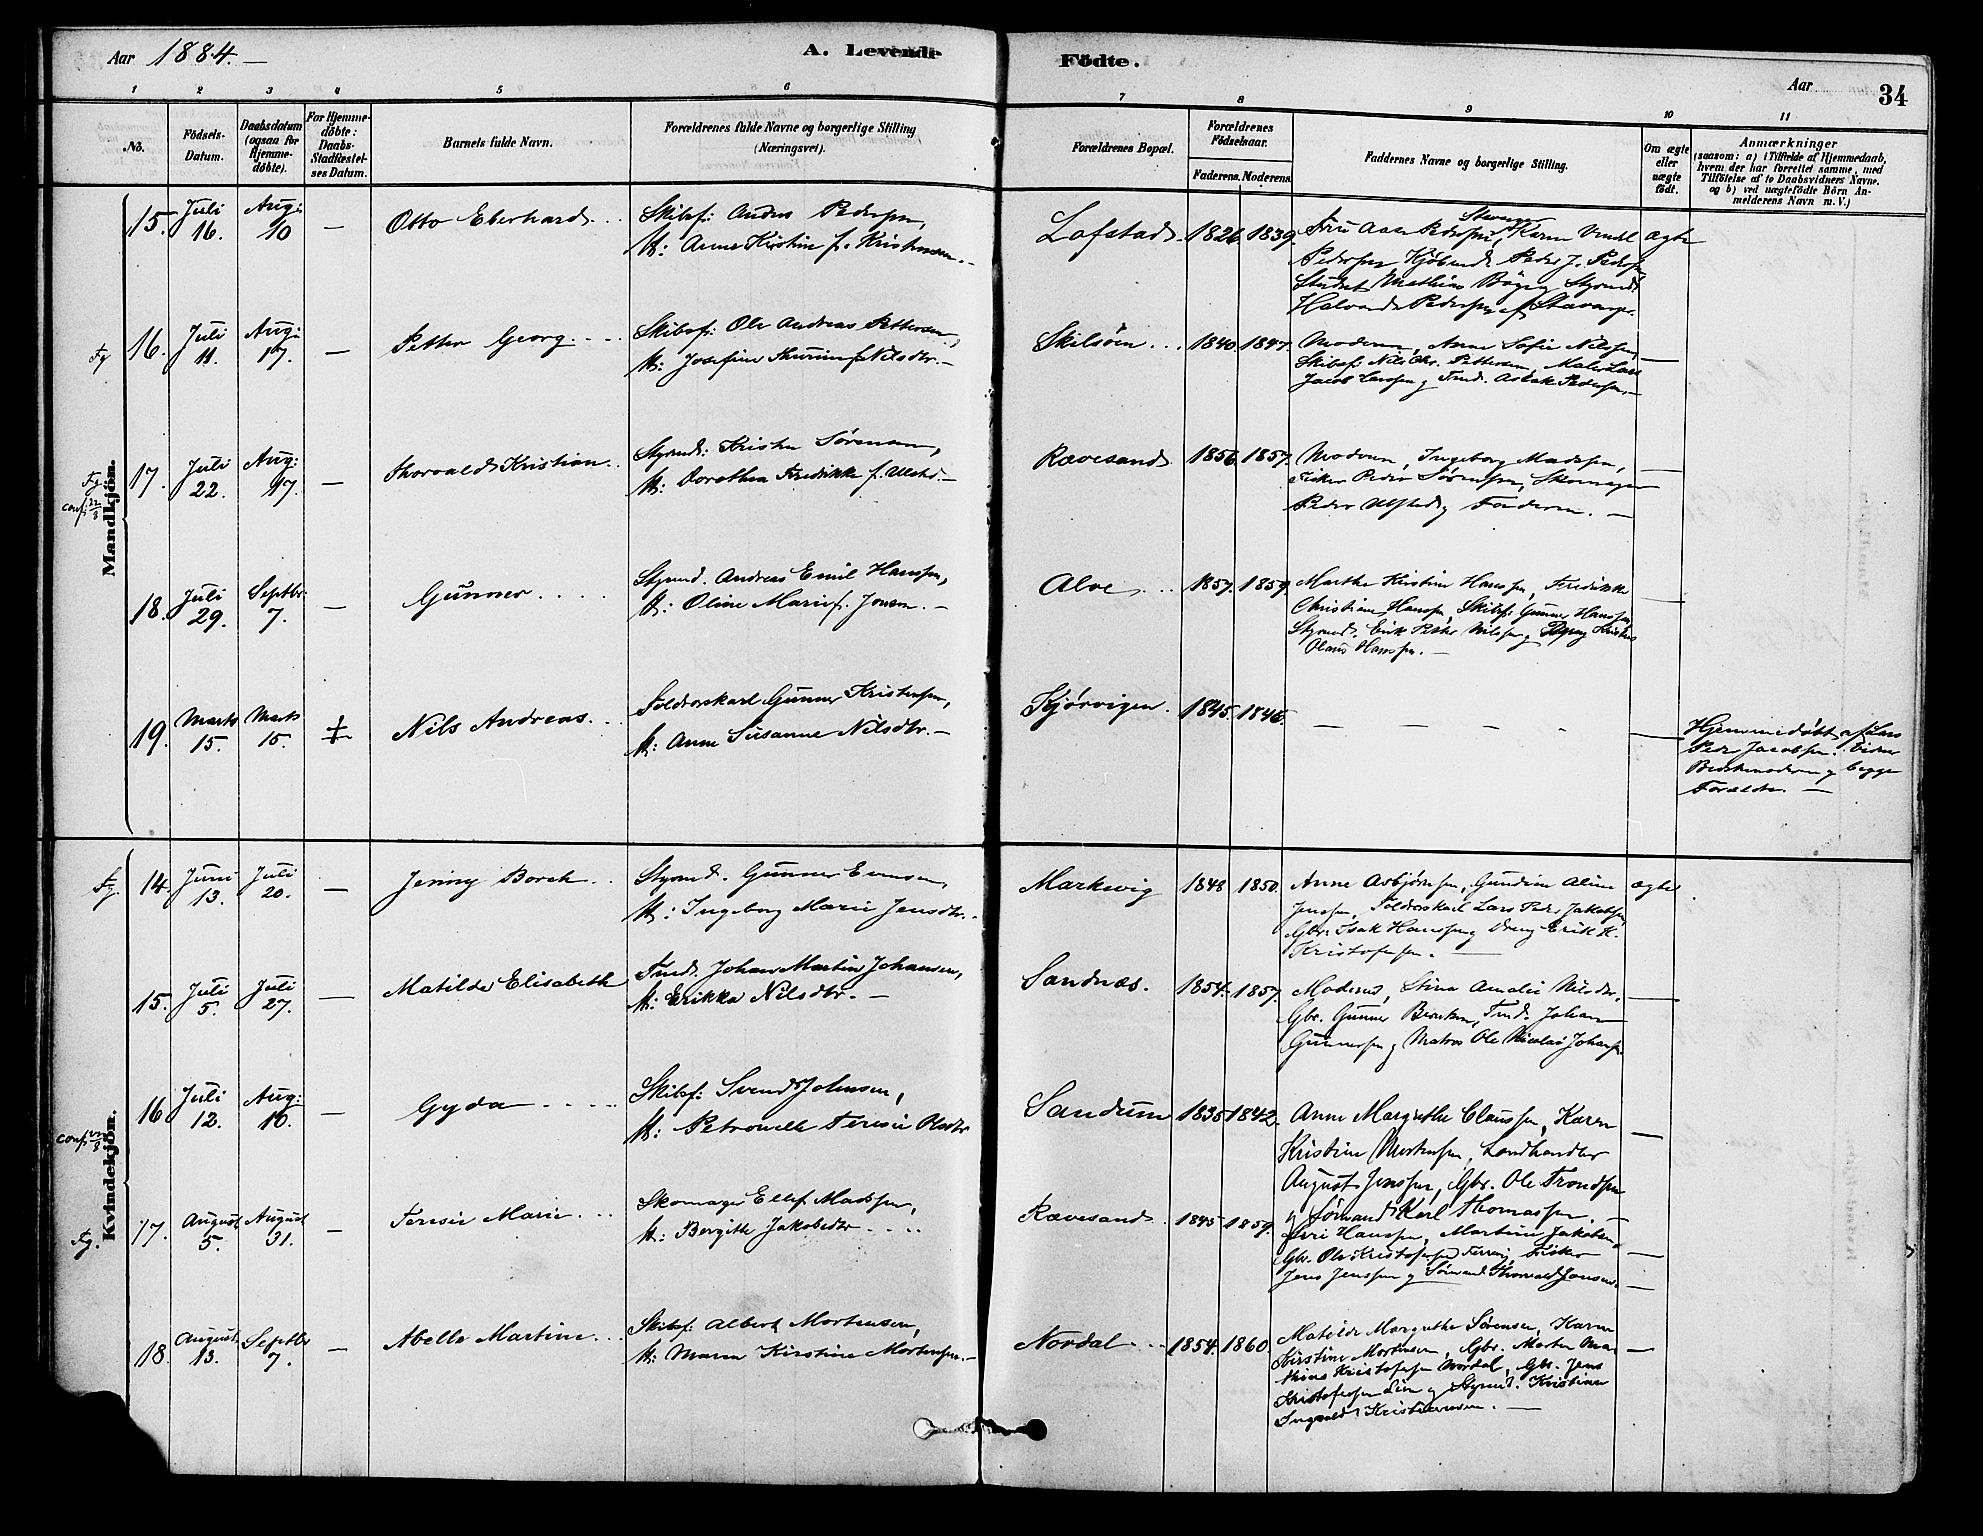 Aar 1884. —
A. Levende Födte.
Aar
34
1 2 3 4 5 6 7 8 9 10 11
No.
Födsels-
Datum.
Daabsdatum
(ogsaa for
Hjemme-
døbte).
For Hjemme-
døbte:
Daabs-
Stadfæstel-
ses Datum.
Barnets fulde Navn.
Forældrenes fulde Navne og borgerlige Stilling
(Næringsvei).
Forældrenes Bopæl.
Forældrenes
Födselsaar.
Faderens. Moderens.
Faddernes Navne og borgerlige Stilling.
Om ægte
eller
uægte
födt.
Anmærkninger
(saasom: a) i Tilfælde af Hjemmedaab,
hvem der har forrettet samme, med
Tilføielse af to Daabsvidners Navne,
og b) ved uægtefödte Börn An-
melderens Navn m. V.)
Mandkjön.
15. Juli 16. Aug: 10 — Otto Eberhard
Skibsf: Anders Pedersen,
H: Anne Kirstine f. Kristensen. —
Lofstad 1826. 1839.
Fru Aase Pedersen, Stavanger Karen
Pedersen Peder J. Pedersen
Student Mathias Styrmd
Halvard Pedersen af Stavanger.
ægte
16. Juli 11. Aug: 17. — Petter Georg.
Skibsf: Ole Andreas Pettersen,
H: Josefine f. Nilsdtr. —
Skilsöen 1840. 1847.
Moderen, Anne Sofie Nilsen,
Skibsf: Nils Chr. Pettersen, Maler Lars
Jacob Larssen og Tmd. Aslak Pedersen. —
17. Juli 22. Aug: 17. — Thorvald Kristian
Styrmd: Kristen Sørensen,
H: Dorothea Fredrikke f. Ulstd. —
Rævesand 1856. 1857.
Moderen, Ingeborg Madssen,
Fisker Peder Sørensen, Skomager
Peder Ulsted og Faderen. —
conf: 22/8
18. Juli 29. Septbr. 7. — Gunner
Styrmd. Andreas Emil Hanssen,
H: Oline Marie f. Jonsen. —
Alve 1857. 1859.
Marthe Kirstine Hanssen, Fredrikke
Christiane Hanssen, Skibsf: Gunner Hanssen,
Styrmd. Erik Petter Nilssen og
Olaus Hanssen. —
19. Marts 15. Marts 15. Nils Andreas.
Foldvorskarl Gunner Kristensen,
H: Anne Susanne Nilsdtr. —
Kjørvigen. 1845. 1846.
Hjemmedøbt af Lars
Peder Jacobsen. Vidner
Bedstemoderen og begge
Forældre. —
Kvindekjön.
14. Juni 13. Juli 20. — Jenny Borch
Styrmd. Gunner Evensen,
H: Ingeborg Marie Jensdtr.
Markevig 1848 1850.
Anne Asbjørnsen, Gundine Aline
Jenssen, Foldvorskarl Lars Peder Jakobsen,
Gbr. Isak Hanssen og Dreng Erik K.
Kristofersen. —
ægte
15. Juli 5. Juli 27. — Matilde Elisabeth
Tmd. Johan Martin Johansen,
H: Erikka Nilsdtr. —
Sandnæs. 1854. 1857.
Moderen, Stina Amalie Nilsdtr,
Gbr. Gunner Berntsen, Tmd. Johan
Gunnersen og Matros Ole Nicolai Johansen
16. Juli 12. Aug: 10. — Gyda
Skibsf: Svend Johnsen,
H: Petronelle Teresie
Sandum 1835 1842.
Anne Margrethe Claussen, Karen
Kristine Mortensen, Landhandler
August Jenssen, Gbr. Ole Trondsen
og Sømand Karl Thomassen —
conf: 22/8
17. August 5. August 31. — Teresie Marie
Skomager Ellef Madssen,
H: Bergitte Jakobsdtr
Rævesand 1845 1859.
Hanssen, Martine Jakobsen,
Gbr. Ole Kristofersen Fisker
Jens Jenssen og Sømand Thorvald Jonsen. —
18. August 13. Septbr 7. — Abelle Martine
Skibsf: Albert Mortensen,
H: Maren Kirstine Mortensen. —
Nordal 1854. 1860.
Matilde Margrethe Sørensen, Karen
Kirstine Mortensen, Gbr. Morten Ma-
thias Kristofersen Nordal, Gbr. Jens
Kristofersen Lien og Styrmd. Kristian
Ingvald Kristiansen. —